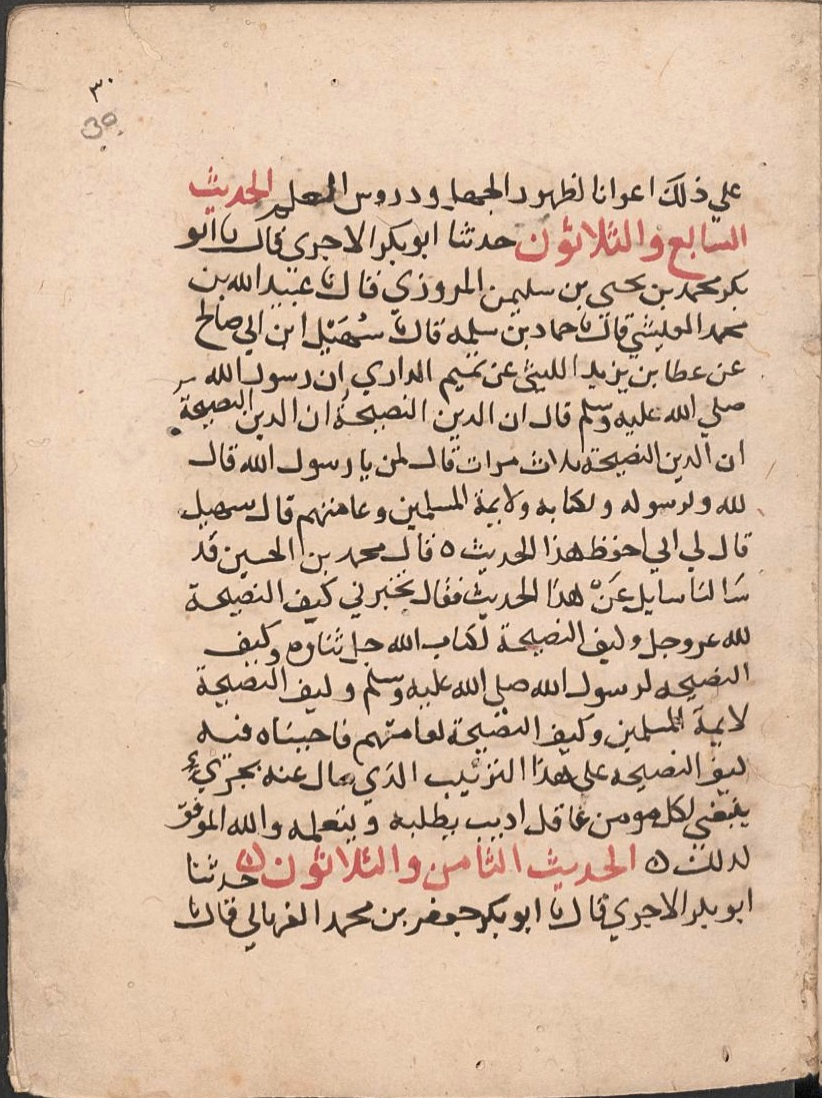 ٣٠
30
علي ذلك اعوانا لظهور الجهل ودروس العلم الحديث
السابع والثلاثون حدثنا ابو بكر الاجري قال نا ابو
بكر محمد بن يحيى بن سليمن المروزي قال نا عبيد الله بن
محمد العيشي قال نا حماد بن سلمه قال نا سُهَيْل ابن ابي صالح
عن عطا بن يزيد الليثي عن تميم الداري ان رسول الله
صلي الله عليه وسلم قال ان الدين النصيحةُ ان الدين النصيحة
ان الدين النصيحة ثلاث مرات قال لمن يا رسول الله قال
لله ولرسوله ولكتابه ولايمة المسلمين وعامتهم قال سهيل
قال لي ابي احفظ هذا الحديث ٥ قال محمد بن الحسين قد
سالنا سايل عَنْ هذا الحديث فقال يخبرني كيف النصيحة
لله عز وجل وكيف النصيحة لكتاب الله جل ثناوه وكيف
النصيحه لرسول الله صلي الله عليه وسلم وكيف النصيحة
لايمة المسلمين وكيف النصيحة لعامتهم فاجبناه فيه
كيف النصيحه علي هذا الترتيب الذي سال عنه بجزيء
ينبغي لكل مومن عاقل اديب يطلبه ويتعلمه والله الموفق
لذلك ٥ الحديث الثامن والثلاثون ٥ حدثنا
ابو بكر الاجري قال نا ابو بكر جعفر بن محمد الفريابي قال نا